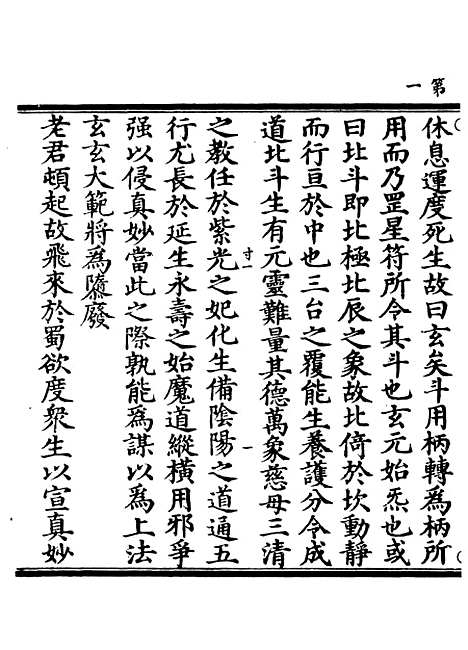 第一
休息運度死生故曰玄矣斗用柄轉為柄所
用而乃罡星符所令其斗也玄元始炁也或
曰北斗即北極北辰之象故北倚於坎動靜
而行亘於中也三台之覆能生養護分令成
道北斗生有元靈難量其德萬象慈母三清
寸一 一
之教任於紫光之妃化生備陰陽之道通五
行尤長於延生永壽之始魔道縱橫用邪爭
强以侵真妙當此之際孰能為謀以為上法
玄玄大範將為隳廢
老君頓起故飛來於蜀欲度衆生以宣真妙